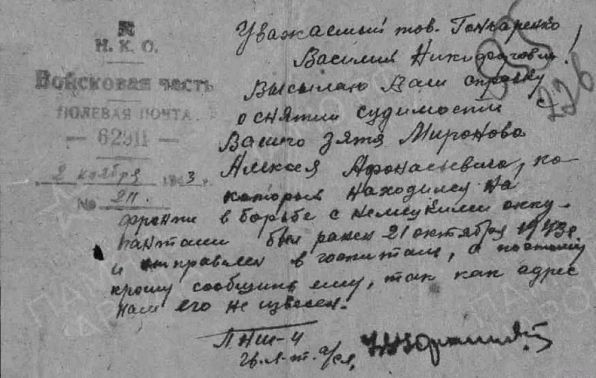 Н.К.О.
Войсковая часть
ПОЛЕВАЯ ПОЧТА
— 62911 —
2 ноября 1943 г.
№ 211.
Уважаемый тов. Гончаренко
Василий Никифорович!
Высылаю Вам справку
о снятии судимости с
Вашего зятя Миронова
Алексея Афонасьевича, ко-
который находился на
фронте в борьбе с немецкими окку-
пантами был ранен 21 октября 1943 г.
и отправлен в госпиталь, а поэтому
прошу сообщить ему, так как адрес
нам его не известен.
ПНШ-4
гв. л-т. а/сл.
226